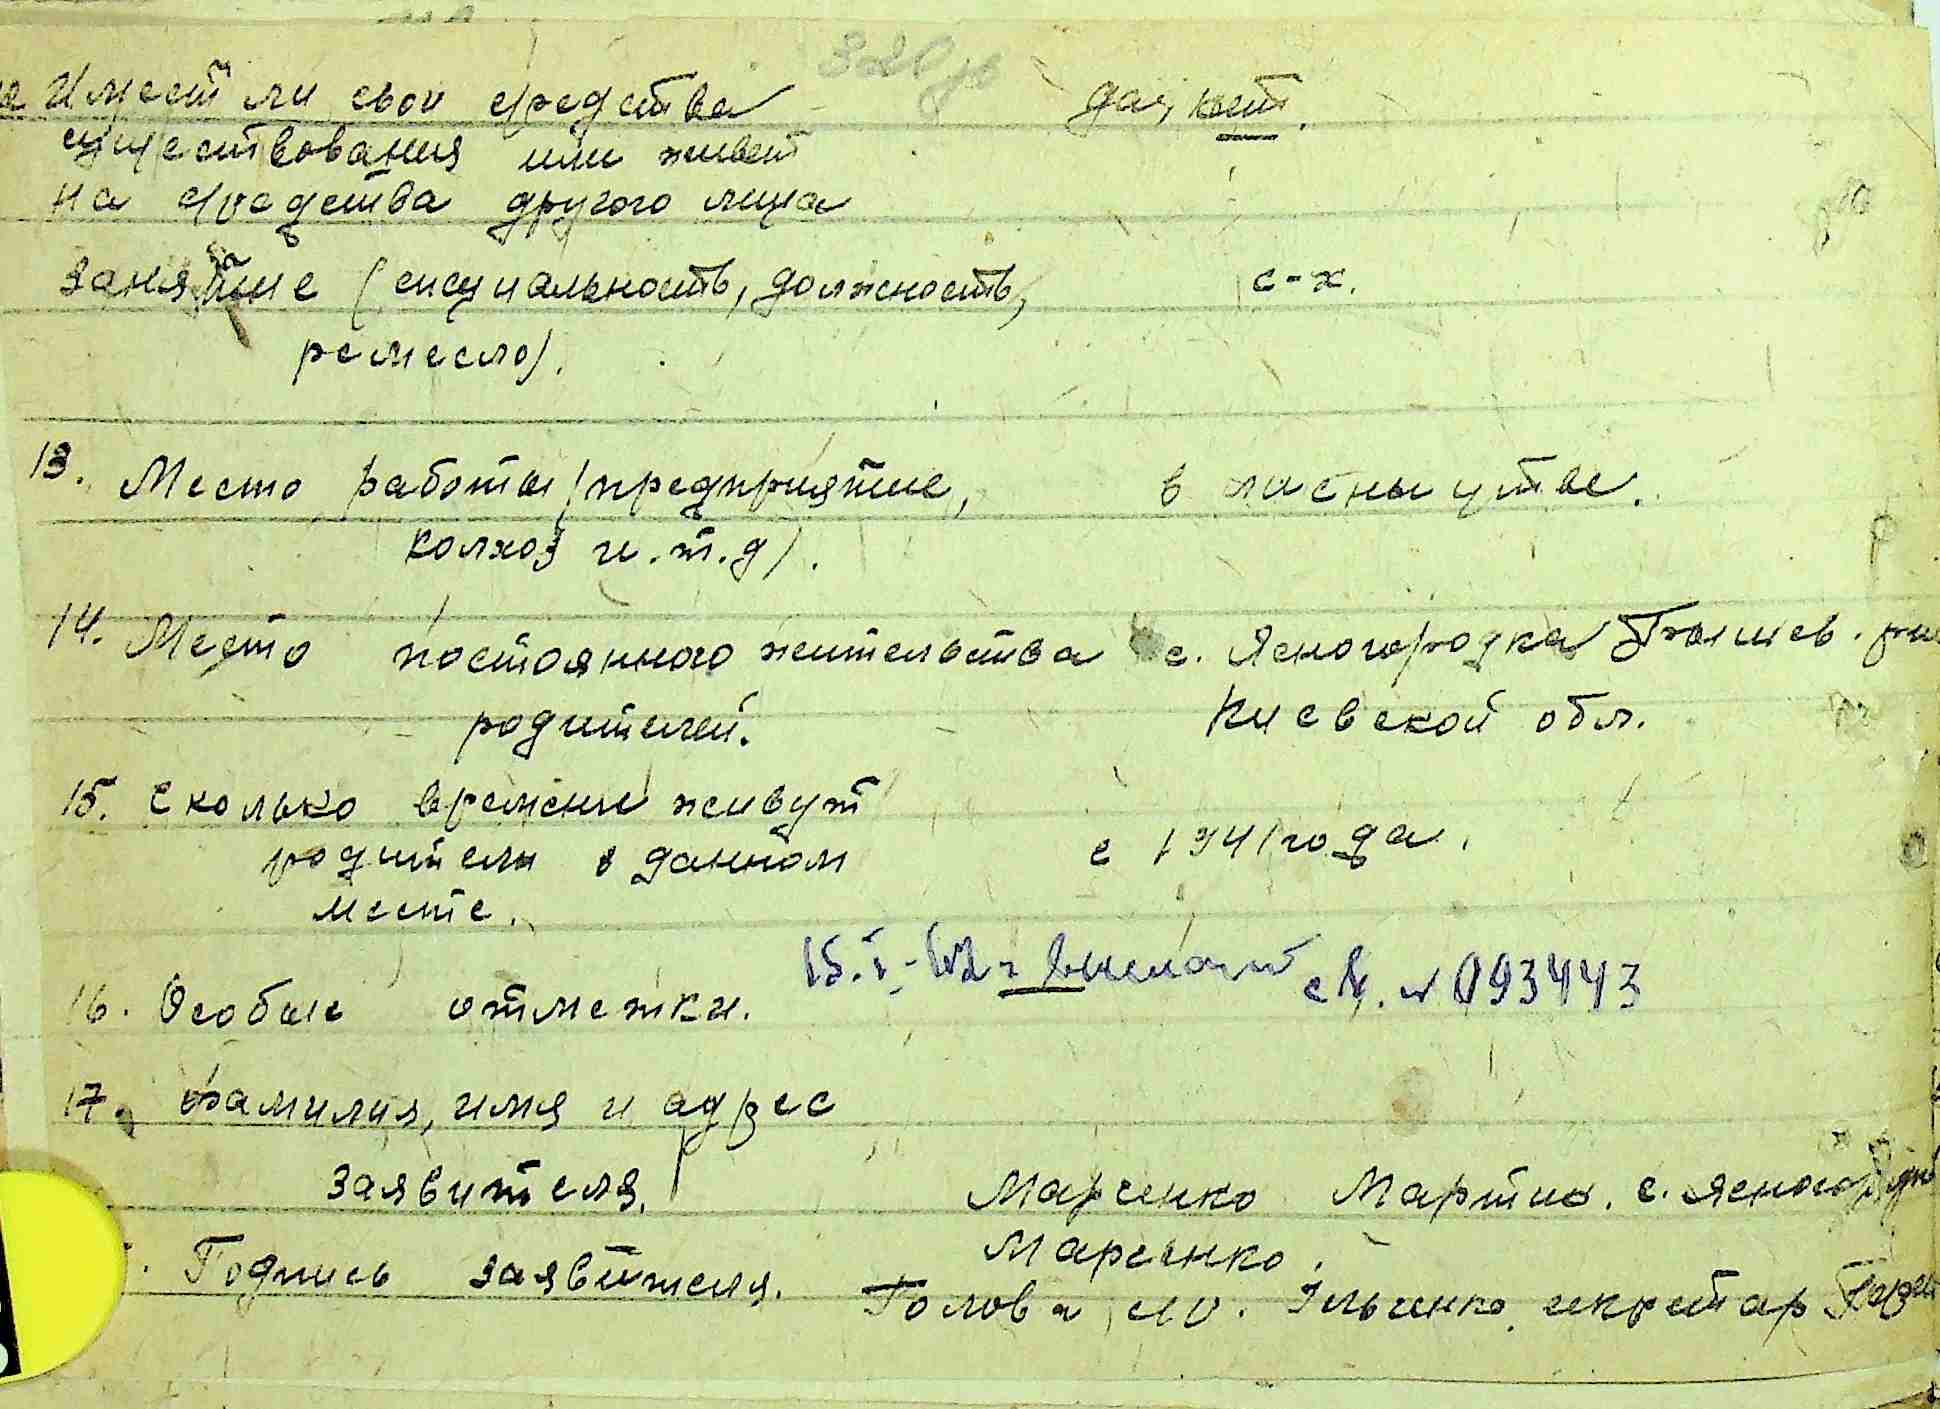 Имеет ли свои средства да, нет.
существования или живет
на средства другого лица
занятие (специальность, должность, с-х.
ремесло).
13. Место работы (предприятие,
колхоз и.т.д).
14. Место постоянного жительства с. Ясногородка
родителей. Киевской обл.
15. Сколько времени живут
родители в данном с 1941 года.
месте.
16. Особые отметки. св. № 093443
17. Фамилия, имя и адрес
заявителя. Марченко Мартин. с.
Марченко.
Подпись заявителя. Голова с/р. Ільченко. секретар